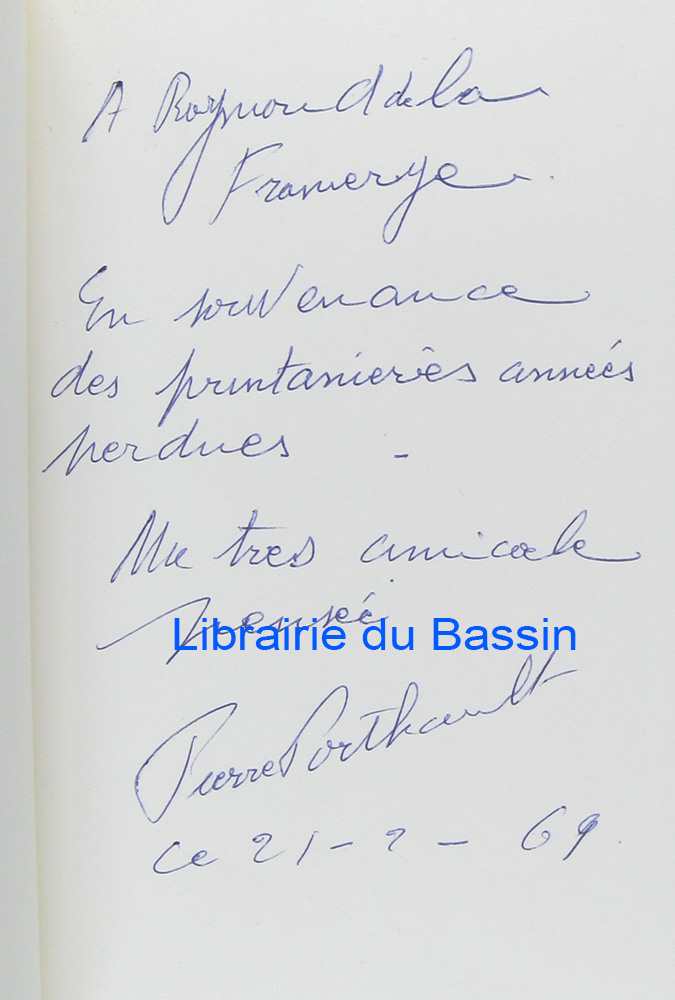 A Raymond de la
Framerye
En souvenance
des printanières années
perdues -
Ma très amicale
pensée
Librairie du Bassin
Pierre Porthault
Ce 21-2-69